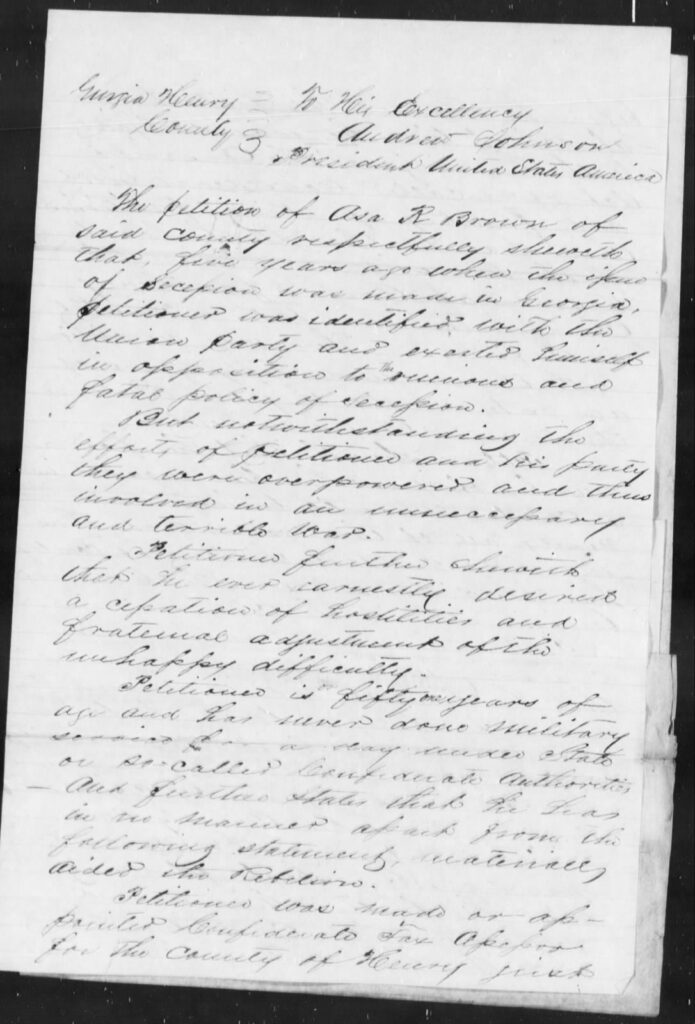 Georgia Henry
County
To His Excellency
Andrew Johnson
President United States America
The petition of Asa R Brown of
said county respectfully sheweth
that, five years ago when the issue
of secession was made in Georgia,
petitioner was identified with the
Union party and exerted himself
in opposition to the ruinous and
fatal policy of secession.
But notwithstanding the
efforts of petitioner and his party
they were overpowered and thus
involved in an unnecessary
and terrible war.
Petitioner further sheweth
that he ever earnestly desired
a cessation of hostilities and
fraternal adjustment of the
unhappy difficulty.
Petitioner is fifty years of
age and has never done military
service for a day under State
or so-called Confederate Authorities
- And further states that he has
in no manner apart from the
following statement, materially
aided the Rebelion.
Petitioner was made or ap-
pointed Confederate Tax Assessor
for the County of Henry just